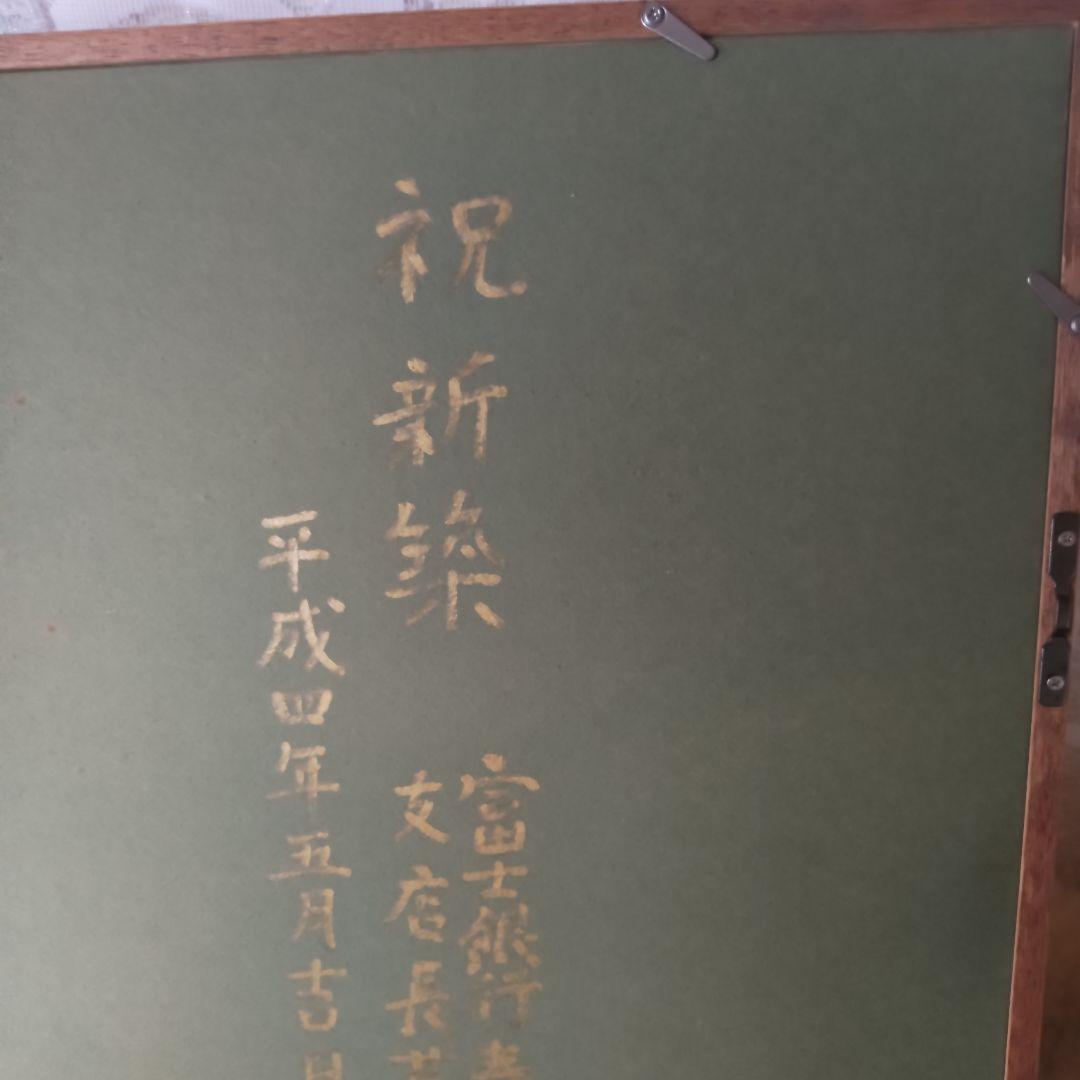 祝新築
富士銀行
支店長
平成四年五月吉日